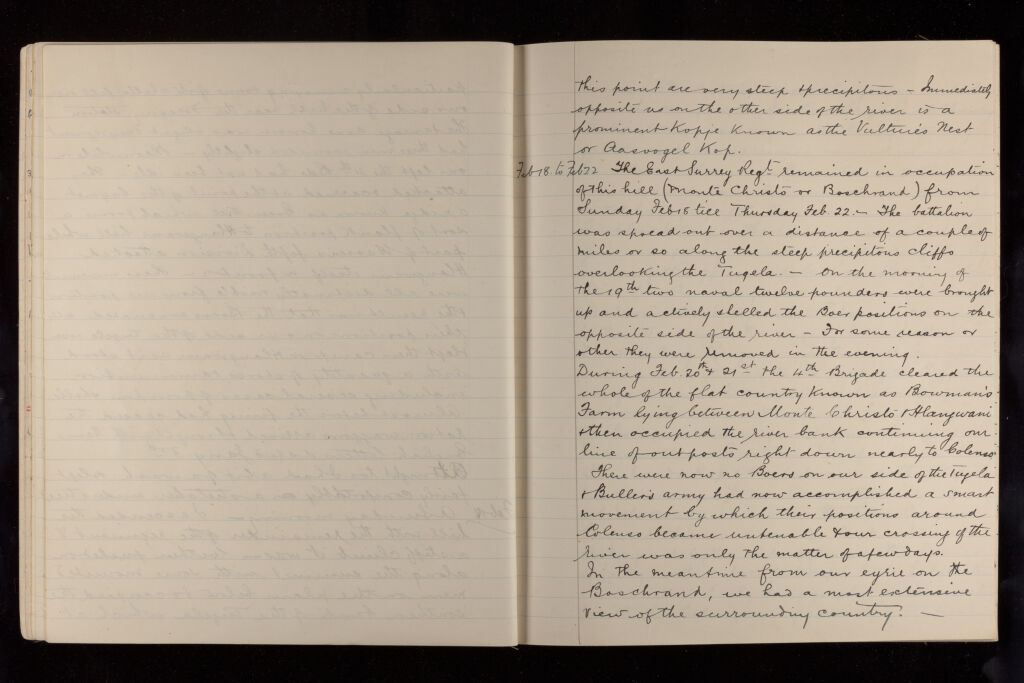 this point are very steep & precipitous – Immediately
opposite us on the other side of the river is a
prominent Kopje known as the Vulture's Nest
or Aasvogel Kop.
Feb 18 to Feb 22 The East Surrey Regt. remained in occupation
of this hill (Monte Christo or Boschrand) from
Sunday Feb 18 till Thursday Feb. 22. – The battalion
was spread out over a distance of a couple of
miles or so along the steep precipitous cliffs
overlooking the Tugela. – On the morning of
the 19th two naval twelve pounders were brought
up and actively shelled the Boer positions on the
opposite side of the river – For some reason or
other they were removed in the evening.
During Feb. 20th & 21st the 4th Brigade cleared the
whole of the flat country known as Bowman's
Farm lying between Monte Christo & Hlangwani
& then occupied the river bank continuing our
line of outposts right down nearly to Colenso
There were now no Boers on our side of the Tugela
& Buller's army had now accomplished a smart
movement by which their positions around
Colenso became untenable & our crossing of the
river was only the matter of a few days.
In the meantime from our eyrie on the
Boschrand, we had a most extensive
view of the surrounding country. –